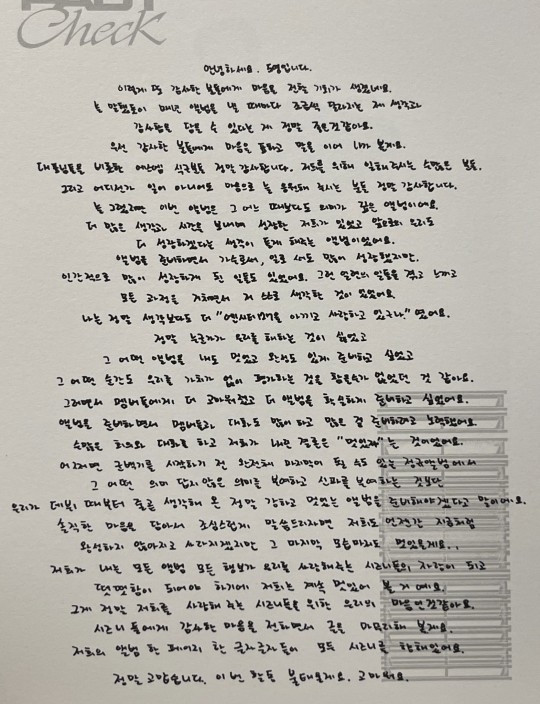 FACT
Check
안녕하세요. 도영입니다.
이렇게 또 감사한 분들에게 마음을 전할 기회가 생겼네요.
늘 말했듯이 매번 앨범을 낼 때마다 조금씩 달라지는 제 생각과
감사함을 담을 수 있다는 게 정말 좋은것같아요.
우선 감사한 분들에게 마음을 표하고 말을 이어 나가 볼게요.
대표님들을 비롯한 에스엠 식구분들 정말 감사합니다. 저희를 위해 일해주시는 수많은 분들.
그리고 어디선가 일이 아니어도 마음으로 늘 응원해 주시는 분들 정말 감사합니다.
늘 그렇지만 이번 앨범은 그 어느 때보다도 의미가 깊은 앨범이에요.
더 많은 생각과 시간을 보내며 성장한 저희가 있었고 앞으로의 우리도
더 성장하겠다는 생각이 들게 해주는 앨범이었어요.
앨범을 준비하면서 가수로서, 일로 서도 많이 성장했지만,
인간적으로 많이 성장하게 된 일들도 있었어요. 그런 일련의 일들을 겪고 느끼고
모든 과정을 거치면서 저 스스로 생각한 것이 있었어요.
나는 정말 생각보다도 더 "엔시티127을 아끼고 사랑하고 있구나." 였어요.
정말 누군가가 우리를 해하는 것이 싫었고
그 어떤 앨범을 내도 멋있고 완성도 있게 준비하고 싶었고
그 어떤 순간도 우리를 가치가 없이 평가하는 것을 참을수가 없었던 것 같아요.
그러면서 멤버들에게 더 고마워졌고 더 앨범을 확실하게 준비하고 싶었어요.
앨범을 준비하면서 멤버들과 대화도 많이 하고 많은 걸 준비하려고 노력했어요.
수많은 회의와 대화를 하고 저희가 내린 결론은 "멋있자"는 것이었어요.
어쩌면 공백기를 시작하기 전 완전체 마지막이 될 수도 있는 정규앨범에서
그 어떤 의미 답지 않은 의미를 부여하고 신파를 부여하는 것보단
우리가 데뷔 때부터 줄곧 생각해 온 정말 강하고 멋있는 앨범을 준비해야겠다고 말이에요.
솔직한 마음을 담아서 조심스럽게 말씀드리자면 저희도 언젠간 지금처럼
완성하지 않아지고 사라지겠지만 그 마지막 모습마저도 멋있을게요..
저희가 내는 모든 앨범 모든 행보가 우리를 사랑해주는 시즈니들의 자랑이 되고
떳떳함이 되어야 하기에 저희는 계속 멋있어 볼 거예요.
그게 정말 저희를 사랑해 주는 시즈니들을 위한 우리의 마음인것같아요.
시즈니 들에게 감사한 마음을 전하면서 글을 마무리해 볼게요.
저희의 앨범 한 페이지 한 글자글자들이 모두 시즈니를 향해있어요.
정말 고맙습니다. 이번 활동 불태워볼게요. 고마워요.